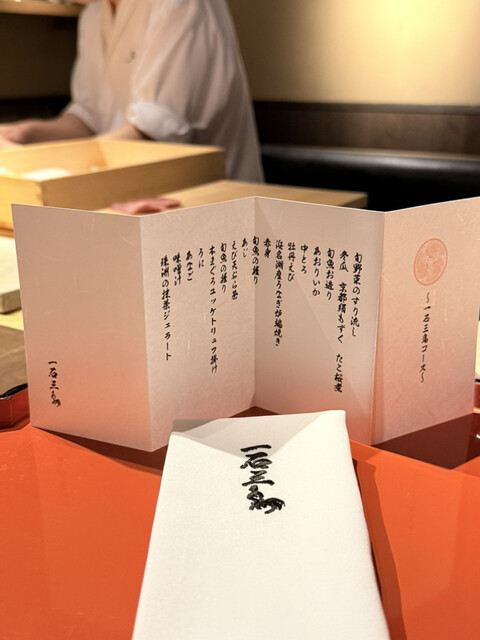 ～一石三鳥コース～
旬野菜のすり流し
冬瓜 京都絹もずく たこ桜煮
旬魚お造り
あおりいか
中とろ
牡丹えび
浜名湖産うなぎ炉端焼き
赤身
旬魚の握り
あじ
えび天ぷら
旬魚の握り
本まぐろユッケトリュフ掛け
うに
あなご
味噌汁
の抹茶ジェラート
一石三鳥
一石三鳥